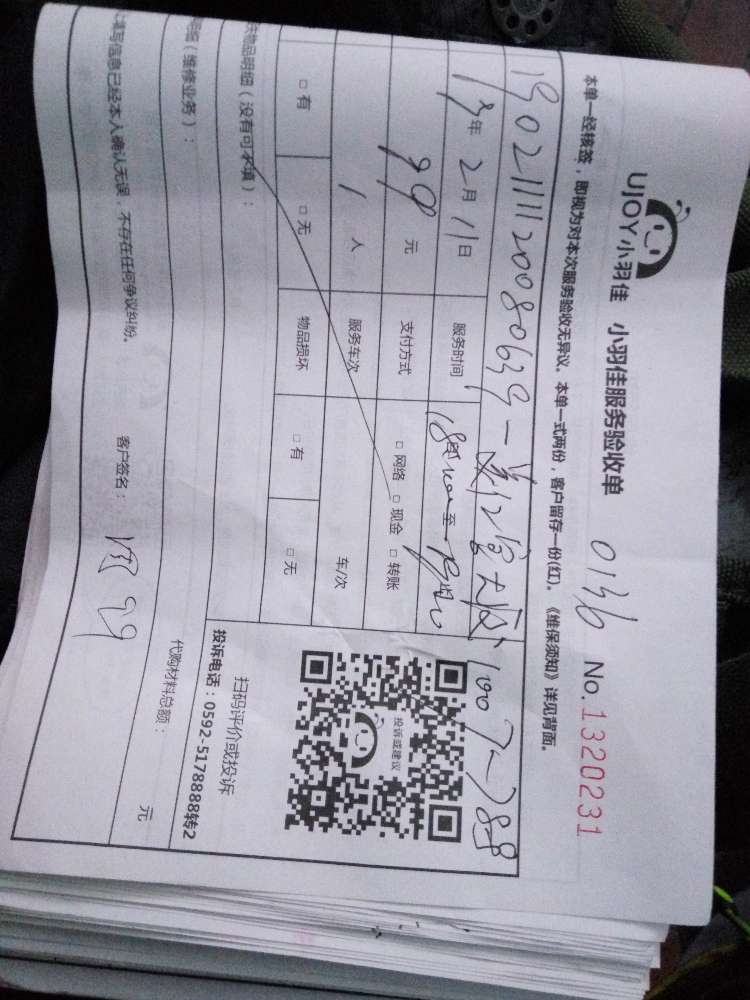 UJOY小羽佳 小羽佳服务验收单 0136 No.1320231
本单一经核签，即视为对本次服务验收无异议。本单一式两份，客户留存一份(红)。《维保须知》详见背面。
1902111120080639一 1007-788
19年2月11日 服务时间 至
99元 支付方式 □ 网络 □ 现金 □ 转账
1人 服务车次 车/次
□ 有 □ 无 物品损坏 □ 有 □ 无
物品明细（没有可不填）：
投诉或建议
扫码评价或投诉
投诉电话：0592-5178888转2
明细（维修业务）： 代购材料总额： 元
填写信息已经本人确认无误，不存在任何争议纠纷。 客户签名：